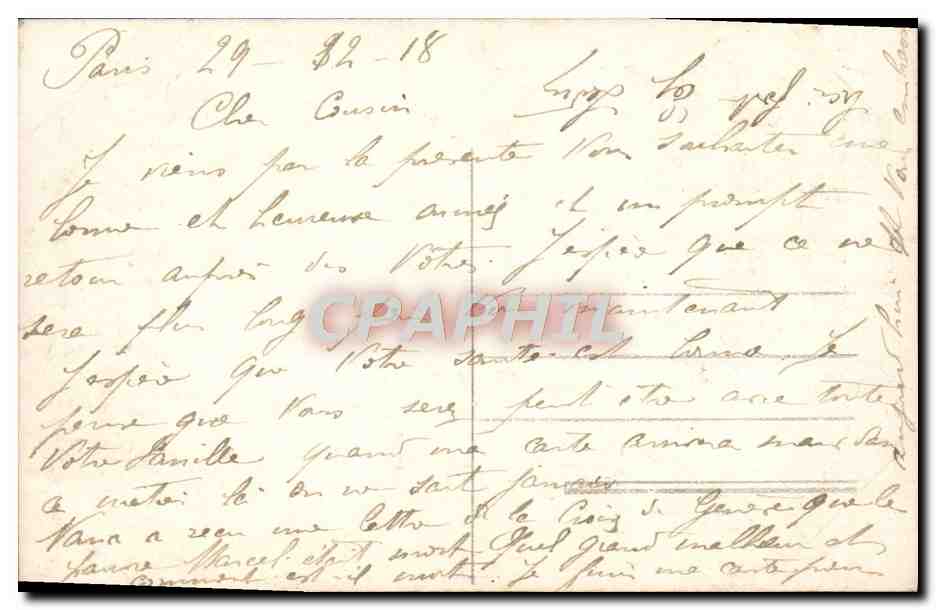 Paris 29 - 12 - 18
Cher Cousin
Je viens par la présente vous souhaiter une
bonne et heureuse année et un prompt
retour auprès des Votres. J'espère que ce ne
sera plus long maintenant
CPAPHIL
J'espère que Votre santé est bonne. Je
pense que Vous serez peut être avec toute
Votre famille quand ma carte arrivera mais dans
ce métier là on ne sait jamais
Nana a reçu une lettre de la Croix de Genève que le
pauvre Marcel était mort. Quel grand malheur et
comment est-il mort. Je finis ma carte pour
aujourd'hui et Vous embrasse